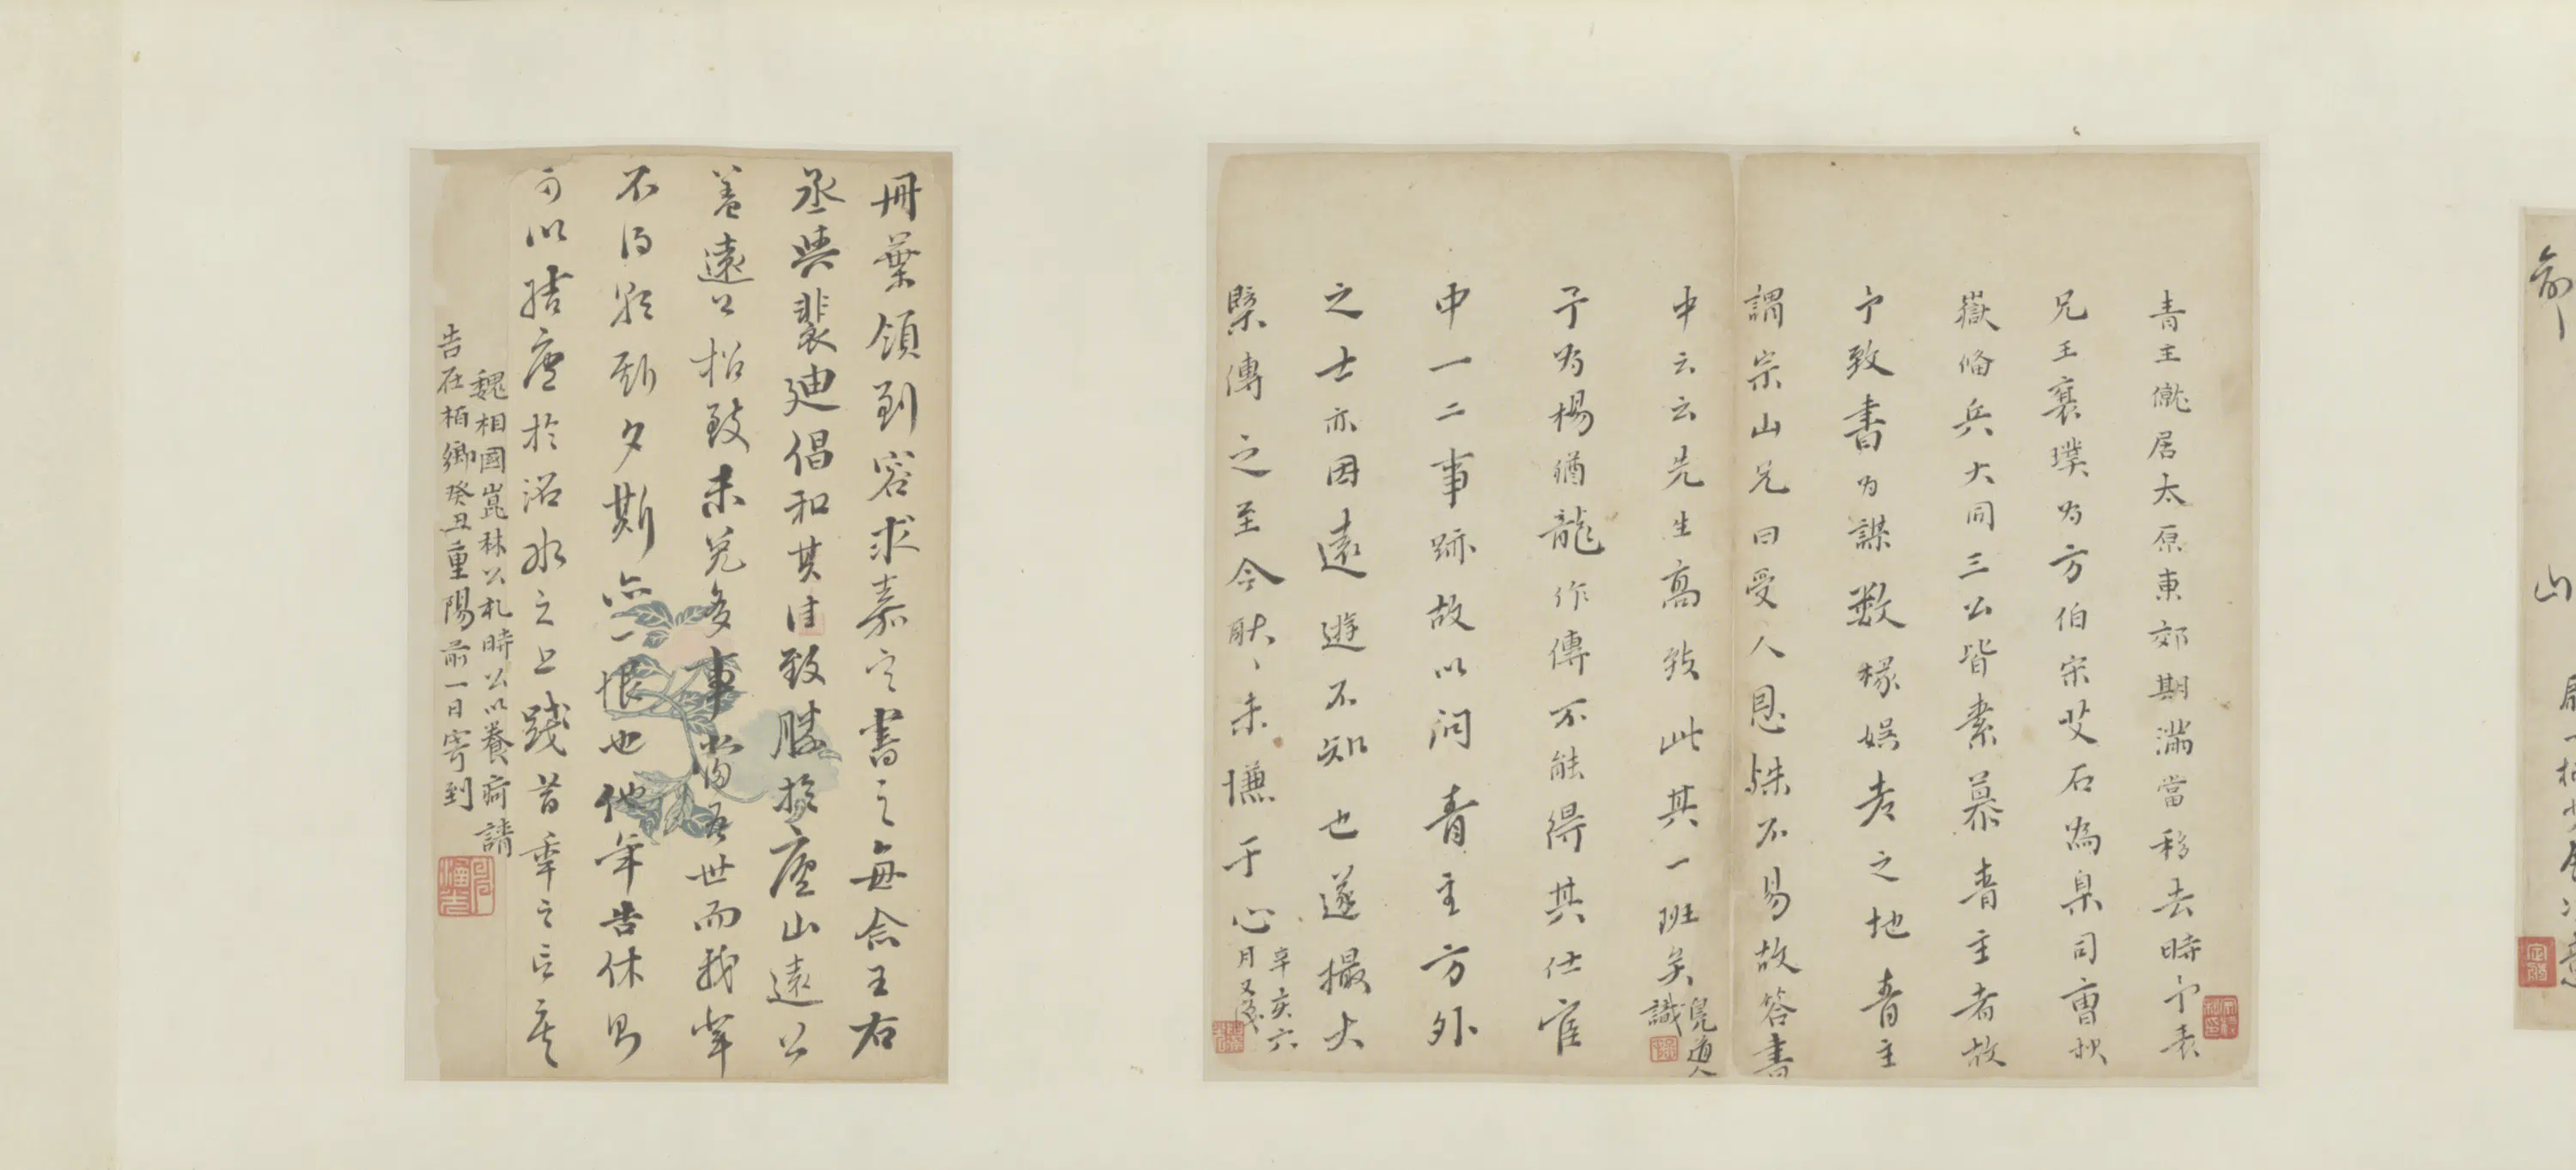 青主僦居太原東郊期滿當移去時予表
兄王襄璞為方伯宋艾石為臬司曹秋
嶽備兵大同三公皆素慕青主者故
予致書為謀數椽娛老之地青主
謂宗山兄曰受人恩殊不易故答書
中云云先生高致此其一班矣
鳧道人
識
予為楊猶龍作傳不能得其仕宦
中一二事跡故以問青主方外
之士亦因遠遊不知也遂撮大
槩傳之至今耿耿未慊于心
辛亥六
月又識
冊葉領到容求嘉定書之每念王右
丞與裴迪倡和其佳致勝於廬山遠公
蓋遠公招致未免多事當吾世而我輩
不得影斯夕斯亦一恨也他年告休另
可以結廬於沼水之上踐昔年之言矣
魏相國崑林公札時公以養疴請
告在栢鄉癸丑重陽前一日寄到